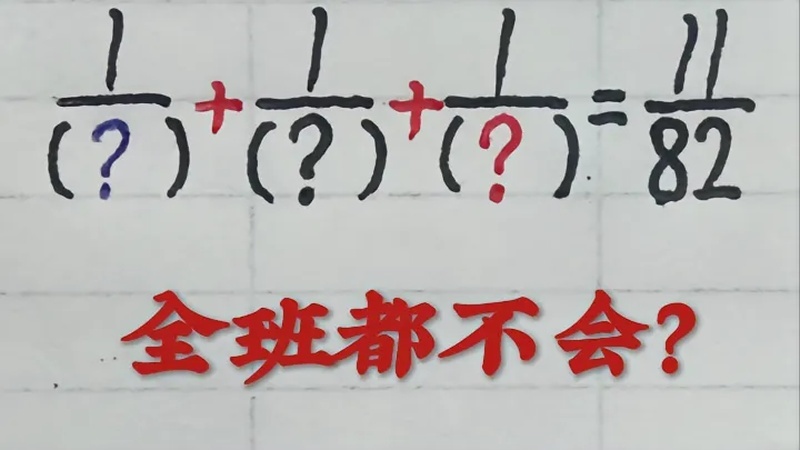 1/(?) + 1/(?) + 1/(?) = 11/82
全班都不会?